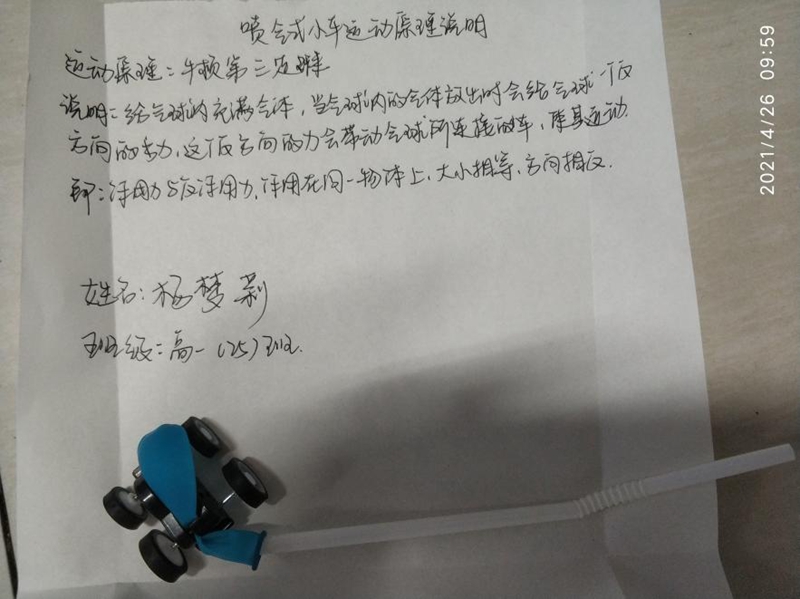 喷气式小车运动原理说明
运动原理：牛顿第三定律
说明：给气球内充满气体，当气球内的气体放出时会给气球一个反
方向的力，这个反方向的力会带动气球所连接的车，使其运动.
即：作用力与反作用力，作用在同一物体上，大小相等，方向相反.
姓名：杨梦莉
班级：高一（25）班.
2021/4/26 09:59